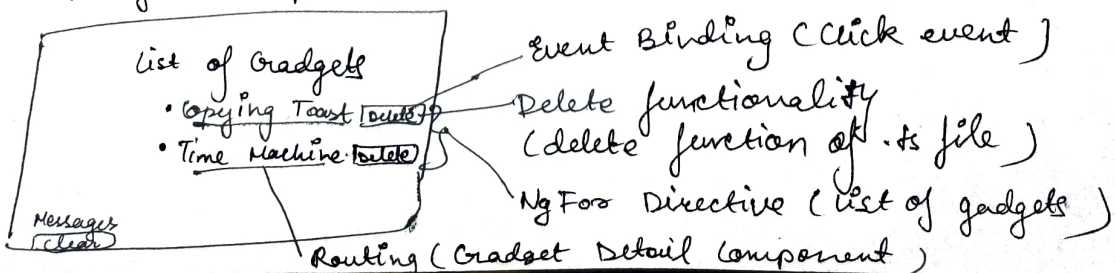 List of Gadgets
• Copying Toast Delete
• Time Machine Delete
Messages
Clear
Event Binding (Click event)
Delete functionality
(delete function of .ts file)
NgFor Directive (list of gadgets)
Routing (Gadget Detail Component)